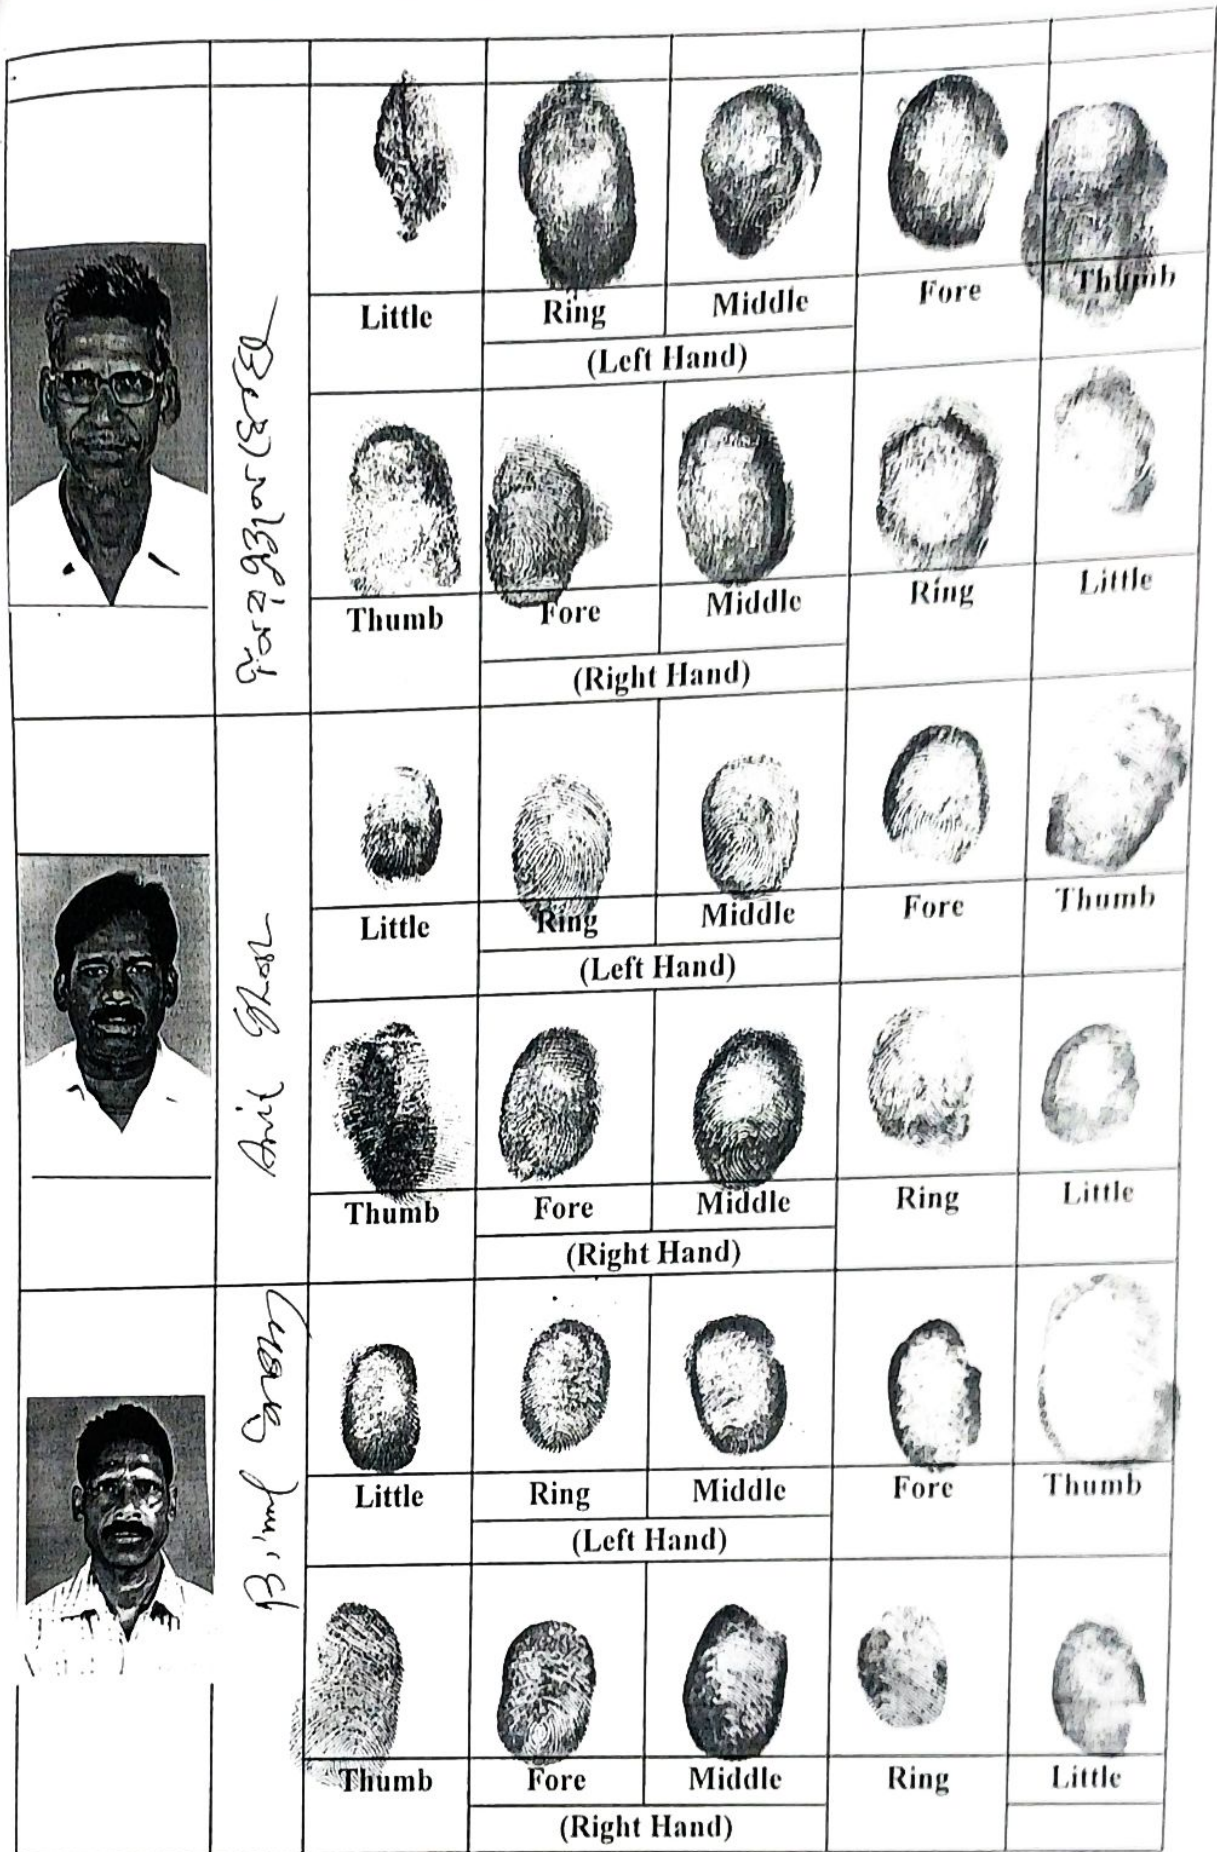 Little Ring Middle Fore Thumb
(Left Hand)
Thumb Fore Middle Ring Little
(Right Hand)
Anil Ghosh
Little Ring Middle Fore Thumb
(Left Hand)
Thumb Fore Middle Ring Little
(Right Hand)
Bimal
Little Ring Middle Fore Thumb
(Left Hand)
Thumb Fore Middle Ring Little
(Right Hand)